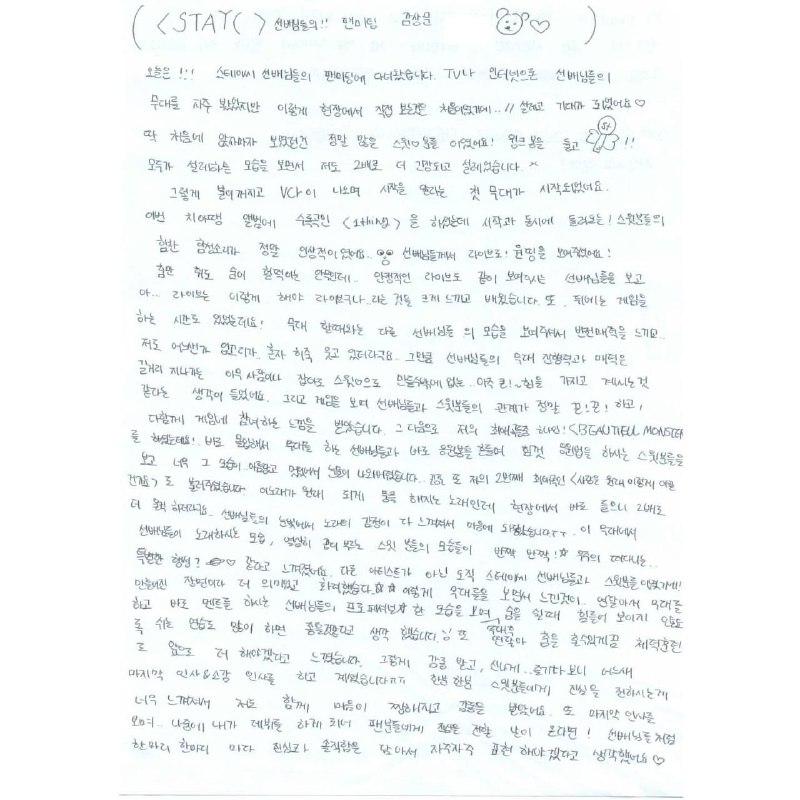 (<STAYC> 선배님들의!! 팬미팅 감상문 ♡)
오늘은!!! 스테이씨 선배님들의 팬미팅에 다녀왔습니다. TV나 인터넷으로 선배님들의
무대를 자주 봤었지만 이렇게 현장에서 직접 보는것은 처음이었기에..// 설레고 기대가 되었어요♡
딱 처음에 앉자마자 보였던건 정말 많은 스윗♡분들 이었어요! 윙크봉을 들고 !!
모두가 설레하는 모습을 보면서 저도 2배로 더 긴장되고 설레었습니다.^
그렇게 불이 꺼지고 VCR이 나오며 시작을 알리는 첫 무대가 시작되었어요.
이번 치어쌥 앨범에 수록곡인 <1thing>을 하셨는데 시작과 동시에 들려오는! 스윗분들의
힘찬 함성소리가 정말 인상적이었어요.. 선배님들께서 라이브도! 보여주셨어요!
춤만 춰도 숨이 헐떡이는 안무인데.. 안정적인 라이브도 같이 보여주시는 선배님들을 보고
아... 라이브는 이렇게 해야 라이브구나..라는 것을 크게 느끼고 배웠습니다. 또, 뒤에는 게임을
하는 시간도 있었는데요! 무대 할때와는 다른 선배님들의 모습을 보여주셔서 반전매력을 느끼고..
저도 어느샌가 입꼬리가.. 혼자 히죽 웃고 있더라구요.. 그만큼 선배님들의 무대 진행력과 매력은
길거리 지나가는 아무 사람이나 잡아도 스윗♡으로 만들수밖에 없는.. 아주 큰!~힘을 가지고 계시는것
같다는 생각이 들었어요. 그리고 게임을 보며 선배님들과 스윗분들의 관계가 정말 끈!끈! 하고!
다함께 게임에 참여하는 느낌을 받았습니다. 그 다음으로 저의 최애곡중 하나인! <BEAUTIFUL MONSTER>
를 하셨는데요! 바로 몰입해서 무대를 하는 선배님들과 바로 응원봉을 흔들며 힘껏 응원법을 하시는 스윗분들을
보고 너무 그 모습이 아름답고 멋있어서 눈물이 나와버렸습니다. 또 저의 2번째 최애곡인 <사랑은 원래 이렇게 아픈
건가요>도 불러주셨습니다 이노래가 원래 되게 뭉클 해지는 노래인데 현장에서 바로 들으니 2배로
더 뭉클 하더라구요.. 선배님들의 눈빛에서 노래의 감정이 다 느껴져서 마음에 와닿았습니다ㅜㅜ. 이 무대에서
선배님들이 노래하시는 모습, 열심히 같이 부르는 스윗 분들의 모습들이 반짝 반짝!☆
특별한 행성? ♡ 같다고 느껴졌어요. 다른 아티스트가 아닌 오직 스테이씨 선배님들과 스윗분들 이었기에!
만들어진 장면이라 더 의미있고 화려했습니다☆☆ 이렇게 무대들을 보면서 느낀것이.. 연달아서 무대를
하고 바로 멘트를 하시는 선배님들의 프로페셔널☆한 모습을 보며 숨을 쉴때 힘들어 보이지 않도
록 쉬는 연습도 많이 하면 좋을것같다고 생각 했습니다! 또 무대후 연달아 춤을 출수있게끔 체력훈련
도 앞으로 더 해야겠다고 느꼈습니다. 그렇게 감동 받고, 신나게.. 즐기다 보니 어느새
마지막 인사&소감 인사를 하고 계셨습니다ㅠㅠ 한분 한분 스윗분들에게 진심을 전하시는게
너무 느껴져서 저도 함께 마음이 찡해지고 감동을 받았어요. 또 마지막 인사를
보며.. 나중에 내가 데뷔를 하게 되어 팬분들에게 진심을 전할 날이 온다면! 선배님들처럼
한마디 한마디 마다 진심과 솔직함을 담아서 자주자주 표현 해야겠다고 생각했어요♡